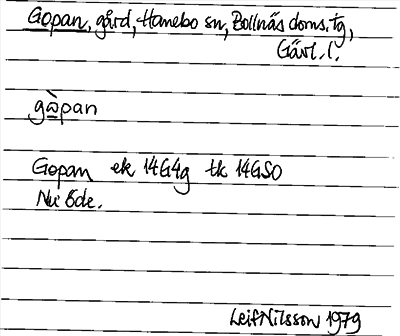 Gopan, gård, Hanebo sn, Bollnäs doms. tg,
Gävl. l.
gɷ̀pan
Gopan ek 14G4g tk 14GSO
Nu öde.
Leif Nilsson 1979